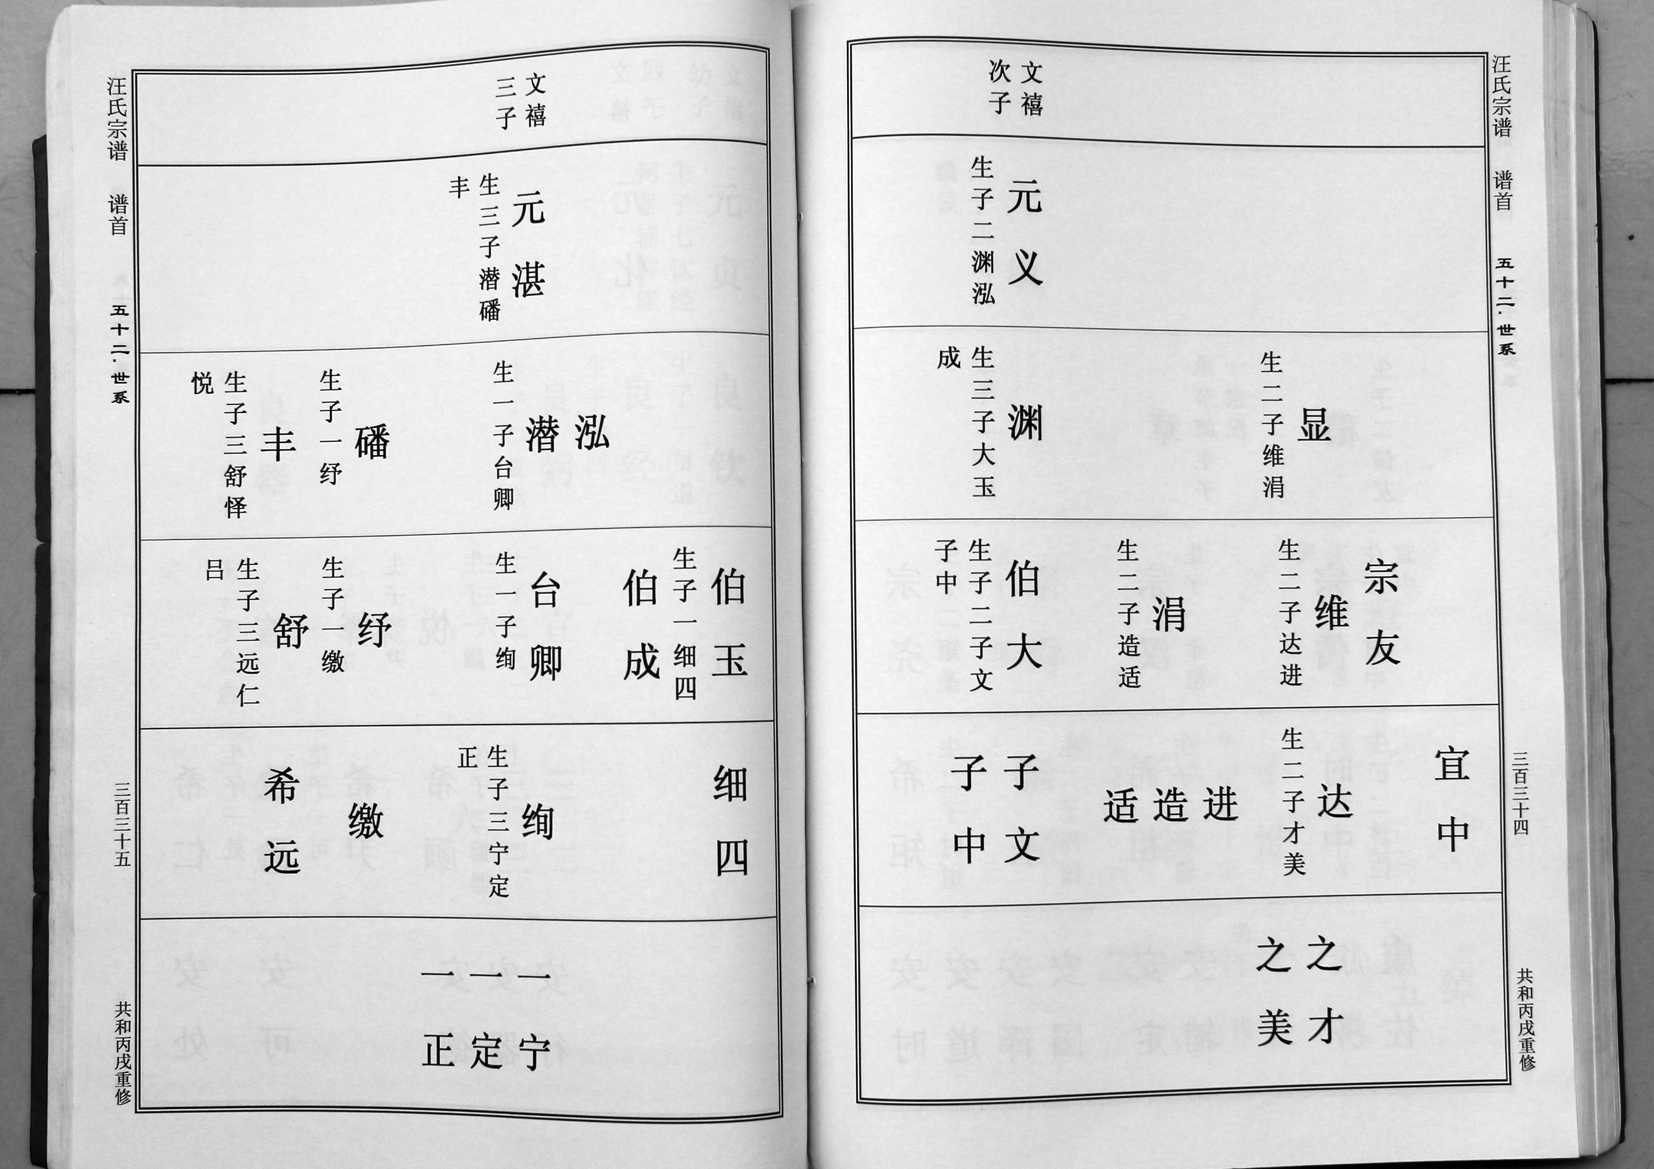 汪氏宗谱 谱首 五十二·世系 三百三十四 共和丙戌重修
文禧
次子
元义
生子二渊泓
显
生二子维涓
渊
生三子大玉
成
宗友
维
生二子达进
涓
生二子造适
伯大
生子二子文
子中
宜中
达
生二子才美
进
造
适
子文
子中
之才
之美
文禧
三子
元湛
生三子潜磻
丰
泓
潜
生一子台卿
磻
生子一纾
丰
生子三舒怿
悦
伯玉
生子一细四
伯成
台卿
生一子绚
纾
生子一缴
舒
生子三远仁
吕
细四
绚
生子三宁定
正
缴
希远
一宁
一定
一正
汪氏宗谱 谱首 五十二·世系 三百三十五 共和丙戌重修